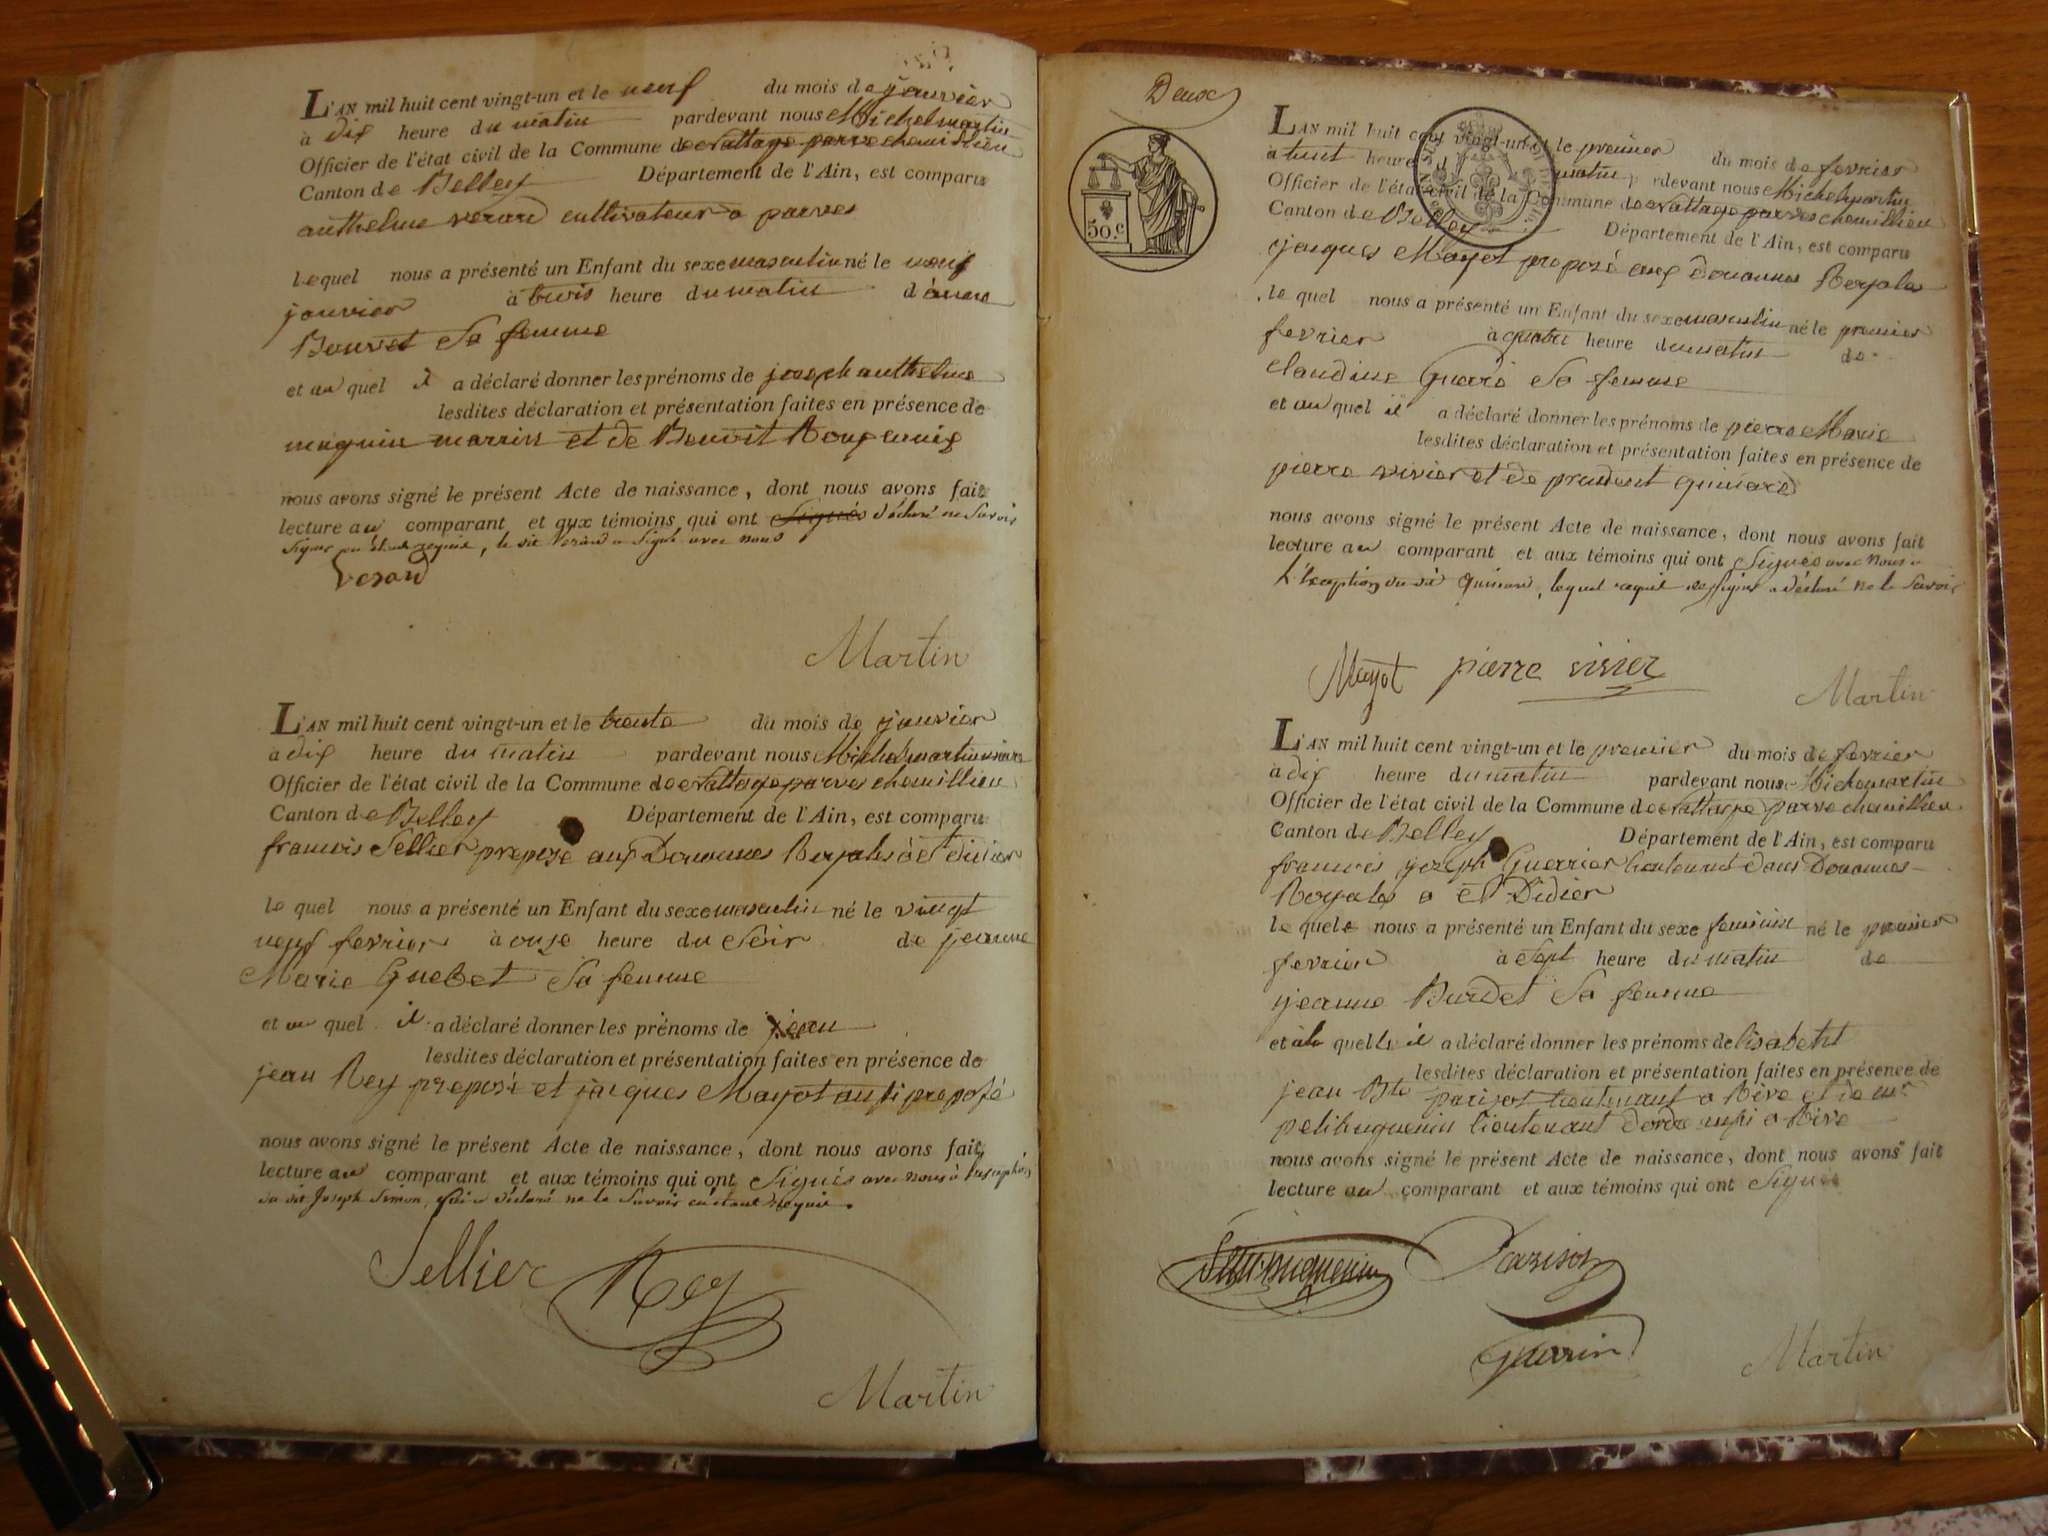 L'AN mil huit cent vingt-un et le neuf du mois de janvier
à dix heure du matin pardevant nous Michel martin
Officier de l'état civil de la Commune de nattage parve chemillieu
Canton de Belley Département de l'Ain, est comparu
anthelme verard cultivateur a parves
lequel nous a présenté un Enfant du sexe masculin né le neuf
janvier à trois heure du matin d'anne
Bouvet Sa femme
et au quel il a déclaré donner les prénoms de joseph anthelme
lesdites déclaration et présentation faites en présence de
et de Benoit
nous avons signé le présent Acte de naissance, dont nous avons fait
lecture au comparant et aux témoins qui ont signés déclaré ne Savoir
Signer requis, le dit verard a Signé avec nous
Verard
Martin
L'AN mil huit cent vingt-un et le trente du mois de janvier
à dix heure du matin pardevant nous Michel martin maire
Officier de l'état civil de la Commune de nattage parves chemillieu
Canton de Belley Département de l'Ain, est comparu
francois Sellier preposé aux Douannes Royales a St didier
le quel nous a présenté un Enfant du sexe masculin né le vingt
neuf fevrier à onze heure du Soir de jeanne
Marie Guebet Sa femme
et au quel il a déclaré donner les prénoms de jean
lesdites déclaration et présentation faites en présence de
jean Rey preposé et jacques Mayot aussi preposé
nous avons signé le présent Acte de naissance, dont nous avons fait
lecture au comparant et aux témoins qui ont Signés avec nous à l'exception
du dit Joseph Simon, qui a déclaré ne le Savoir enétant requis.
Sellier Rey
Martin
Deux
50 c
L'AN mil huit cent vingt-un et le premier du mois de fevrier
à huit heure du matin pardevant nous Michel martin
Officier de l'état civil de la Commune de nattage parves chemillieu
Canton de Belley Département de l'Ain, est comparu
jacques Mayot preposé aux Douannes Royales
le quel nous a présenté un Enfant du sexe masculin né le premier
fevrier à quatre heure du matin de
claudine Guerre Sa femme
et au quel il a déclaré donner les prénoms de pierre Marie
lesdites déclaration et présentation faites en présence de
pierre vivier et de prudent quinard
nous avons signé le présent Acte de naissance, dont nous avons fait
lecture au comparant et aux témoins qui ont Signés avec nous a
L'exception du dit quinard, lequel requis de signer a déclaré ne le Savoir
Mayot pierre vivier
Martin
L'AN mil huit cent vingt-un et le premier du mois de fevrier
à dix heure du matin pardevant nous Michel martin
Officier de l'état civil de la Commune de nattage parve chemillieu
Canton de Belley Département de l'Ain, est comparu
francois joseph Guerrier lieutenant dans Douannes
Royales a St Didier
le quel nous a présenté un Enfant du sexe feminin né le premier
fevrier à Sept heure du matin de
jeanne Burdet Sa femme
et à la quelle il a déclaré donner les prénoms de lisabeth
lesdites déclaration et présentation faites en présence de
jean Bte parisot lieutenant a Rive et de mr
petihuguenin lieutenant d'ordre aussi a Rive
nous avons signé le présent Acte de naissance, dont nous avons fait
lecture au comparant et aux témoins qui ont Signés
Petit-huguenin Parisot
Guerrin
Martin